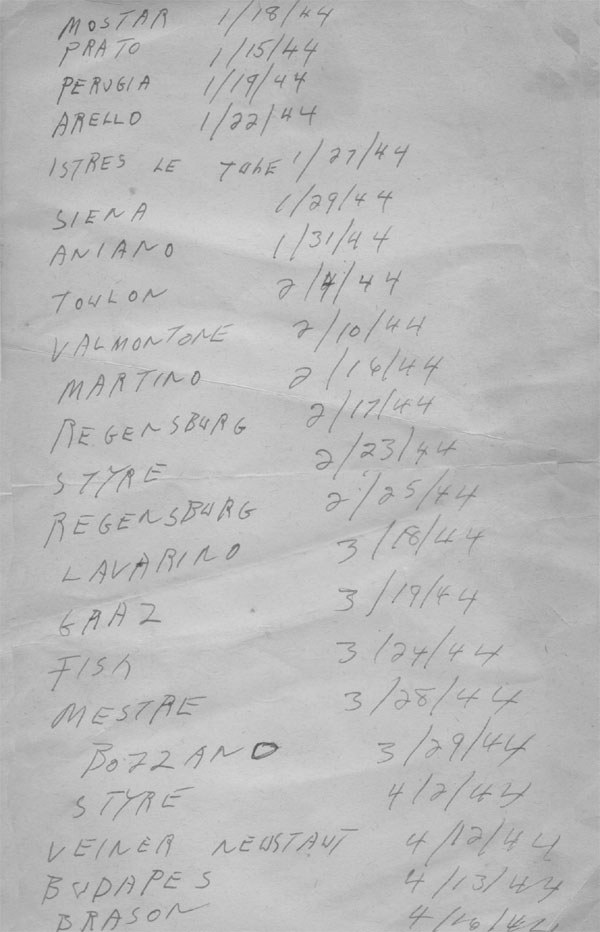 MOSTAR 1/18/44
PRATO 1/15/44
PERUGIA 1/19/44
ARELLO 1/22/44
ISTRES LE TUBE 1/27/44
SIENA 1/29/44
ANIANO 1/31/44
TOULON 2/4/44
VALMONTONE 2/10/44
MARTINO 2/16/44
REGENSBURG 2/17/44
STYRE 2/23/44
REGENSBURG 2/25/44
LAVARINO 3/18/44
GRAZ 3/19/44
FISH 3/24/44
MESTRE 3/28/44
BOZZANO 3/29/44
STYRE 4/2/44
VEINER NEUSTAUT 4/12/44
BUDAPES 4/13/44
BRASON 4/16/44